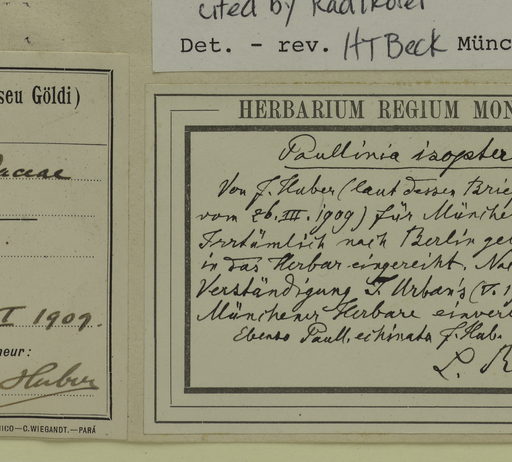 cited by Radlkofer
Det. - rev. HTBeck Münc
seu Göldi)
aceae
I 1909.
neur:
Huber
NICO—C.WIEGANDT.—PARÁ
HERBARIUM REGIUM MON
Paullinia isopter
Von J. Huber (laut dessen Brie
vom 26. III. 1909) für Münche
Irrtümlich nach Berlin ge
in das Herbar eingereiht. Na
Verständigung I. Urban's (V. 1
Münchener Herbare einver
Ebenso Paull. echinata J. Hub.
L. R